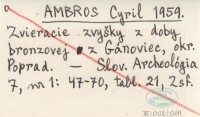 AMBROS Cyril 1959.
Zvieracie zvyšky z doby
bronzovej z Gánoviec, okr.
Poprad. — Slov. Archeológia
7, nr 1: 47-70, tabl. 21, 2sf.